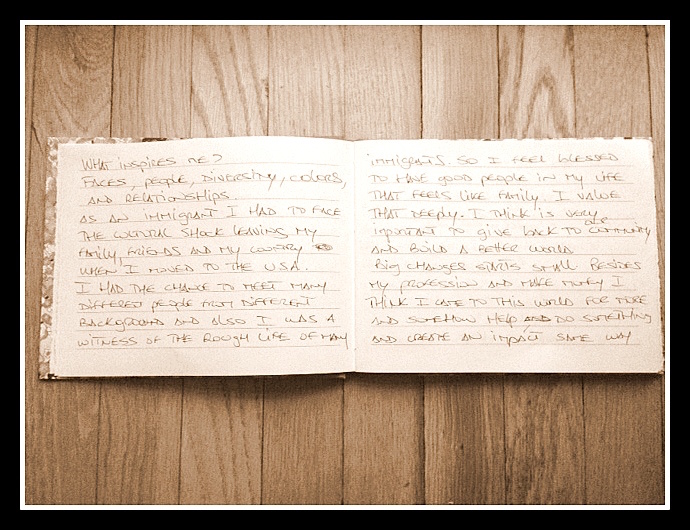 WHAT INSPIRES ME?
FACES, PEOPLE, DIVERSITY, COLORS,
AND RELATIONSHIPS.
AS AN IMMIGRANT I HAD TO FACE
THE CULTURAL SHOCK LEAVING MY
FAMILY, FRIENDS AND MY COUNTRY
WHEN I MOVED TO THE USA.
I HAD THE CHANCE TO MEET MANY
DIFFERENT PEOPLE FROM DIFFERENT
BACKGROUND AND ALSO I WAS A
WITNESS OF THE ROUGH LIFE OF MANY
IMMIGRANTS. SO I FEEL BLESSED
TO HAVE GOOD PEOPLE IN MY LIFE
THAT FEELS LIKE FAMILY. I VALUE
THAT DEEPLY. I THINK IS VERY
IMPORTANT TO GIVE BACK TO OUR COMMUNITY
AND BUILD A BETTER WORLD.
BIG CHANGES STARTS SMALL. BESIDES
MY PROFESSION AND MAKE MONEY I
THINK I CAME TO THIS WORLD FOR MORE
AND SOMEHOW HELP AND DO SOMETHING
AND CREATE AN IMPACT SOME WAY